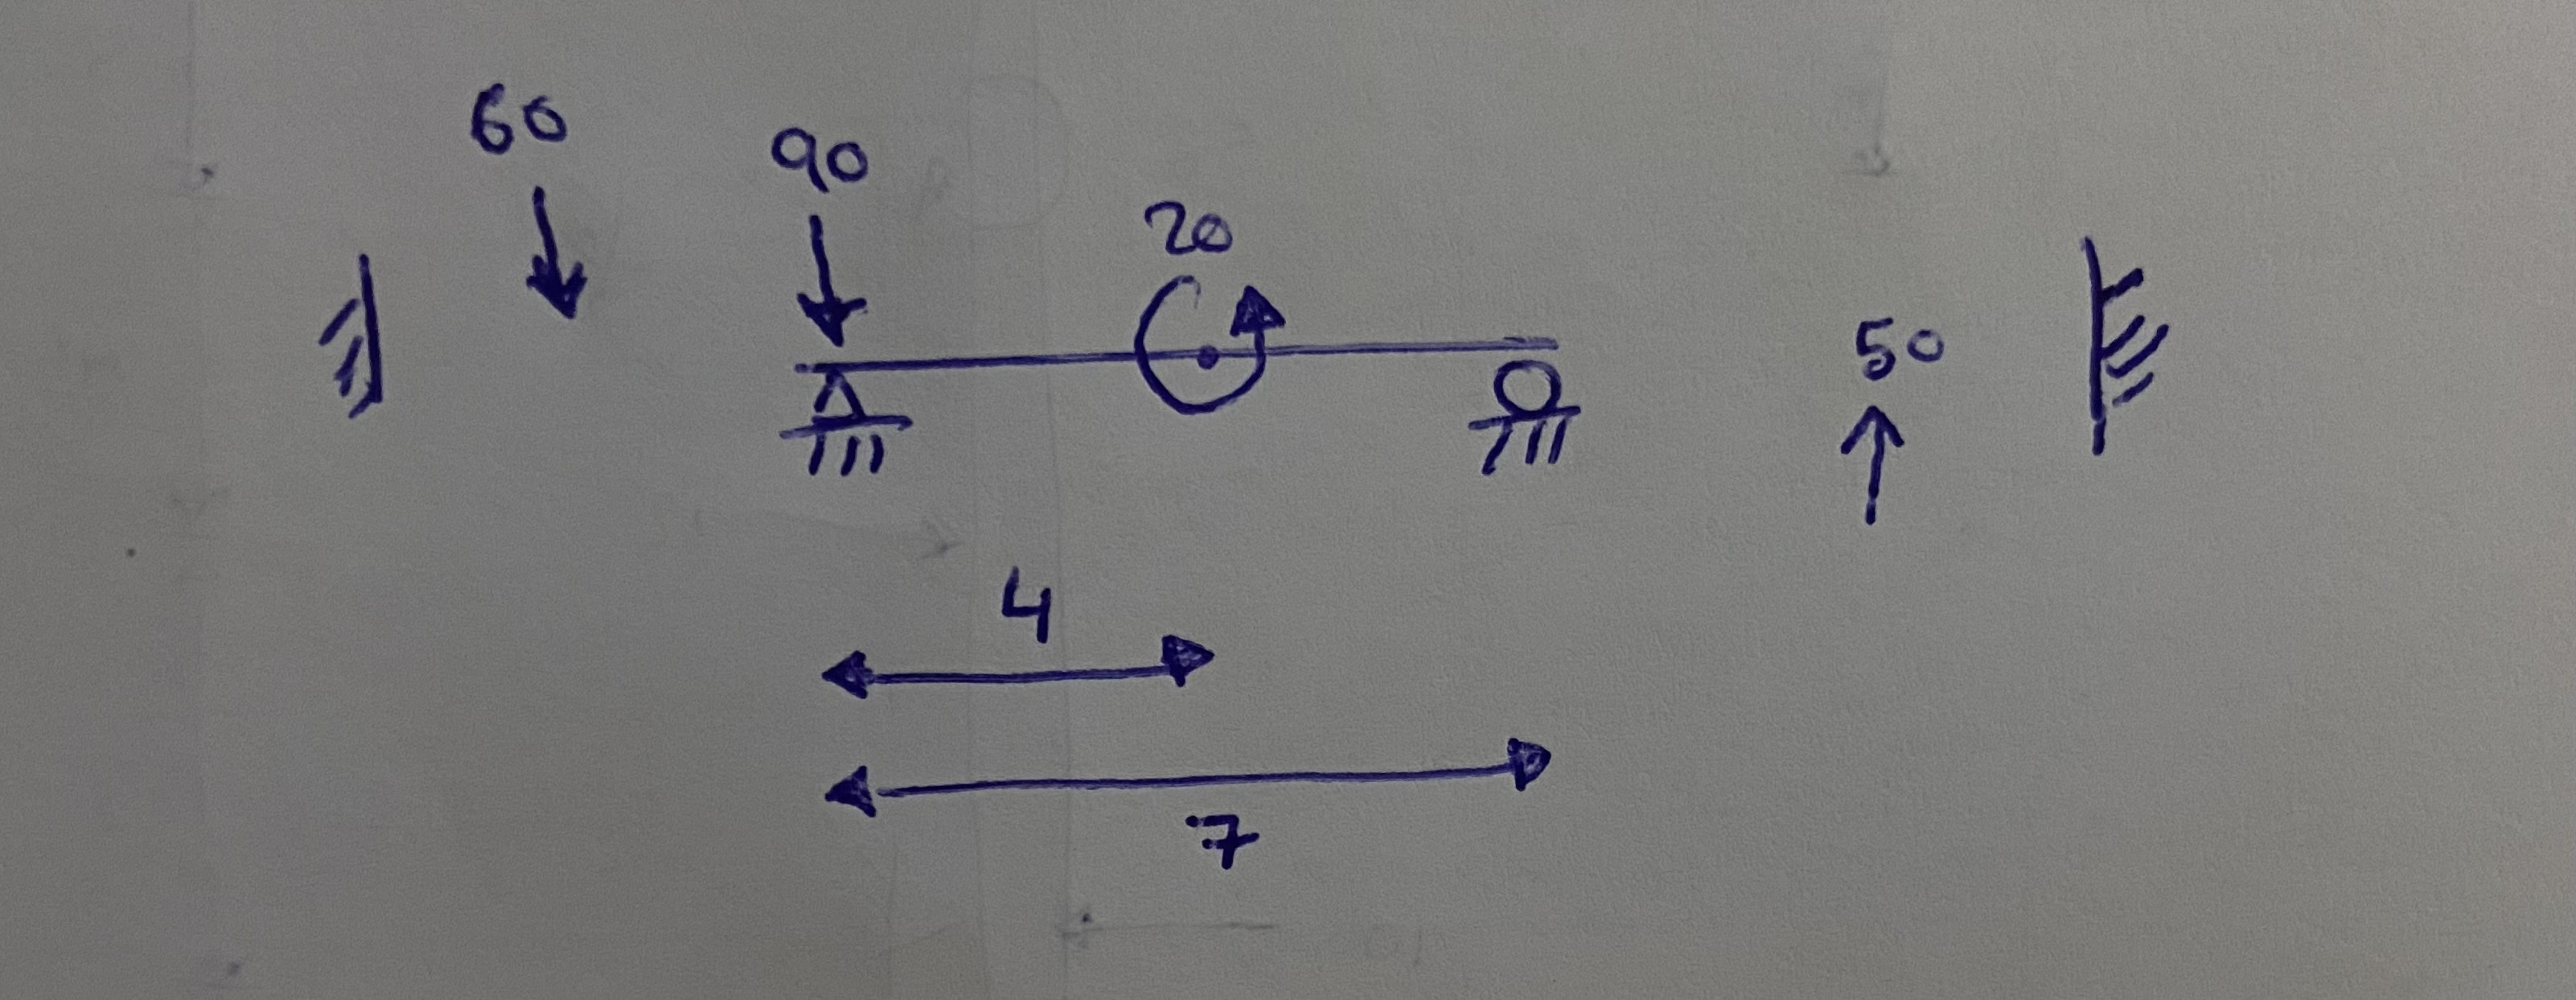 60
90
20
50
4
7